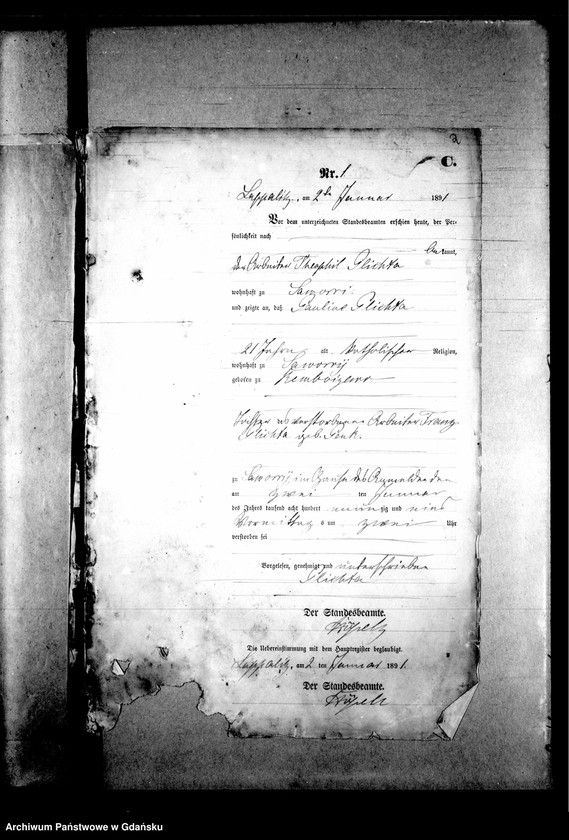 2
C.
Nr. 1
Lappalitz, am 2ten Januar 1891
Vor dem unterzeichneten Standesbeamten erschien heute, der Per-
sönlichkeit nach
kannt,
der Arbeiter Theophil Plichta
wohnhaft zu
und zeigte an, daß Pauline Plichta
21 Jahre alt, katholischer Religion,
wohnhaft zu
geboren zu
Tochter des verstorbenen Arbeiter Franz
Plichta geb.
zu im Hause des Anmeldenden
am zwei ten Januar
des Jahrs tausend acht hundert neunzig und eins
Vormittag s um zwei Uhr
verstorben sei
Vorgelesen, genehmigt und unterschrieben
Plichta
Der Standesbeamte.
Die Uebereinstimmung mit dem Hauptregister beglaubigt.
Lappalitz, am 2 ten Januar 1891.
Der Standesbeamte.
Archiwum Państwowe w Gdańsku